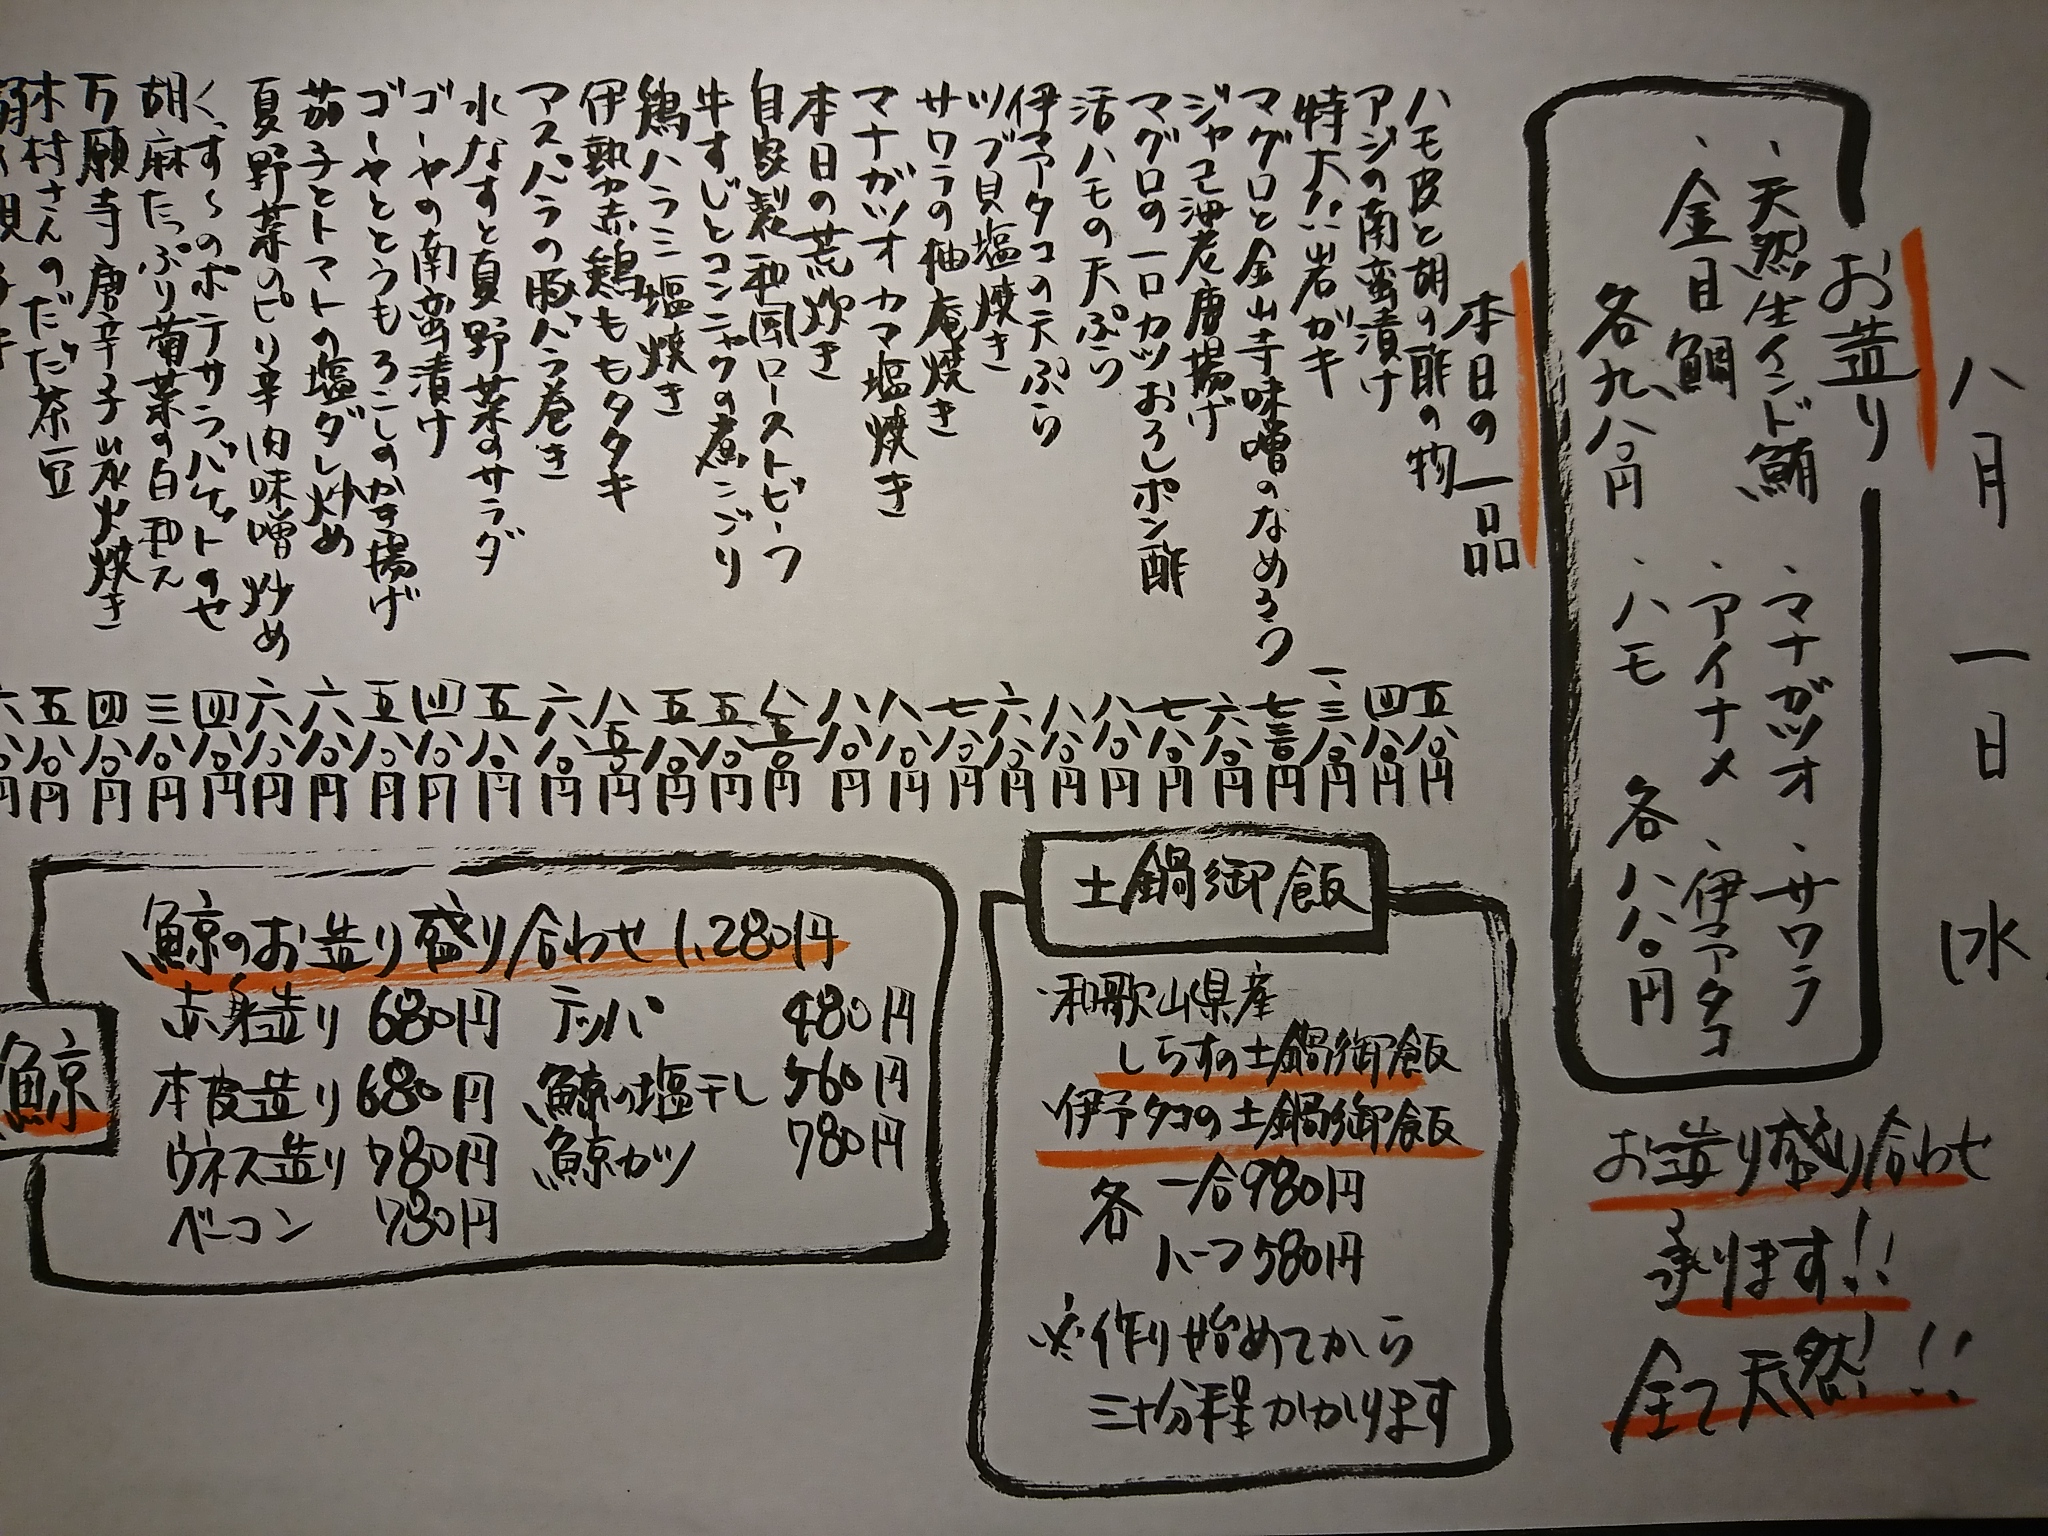 八月一日 水
お造り
・天然生インド鮪
・金目鯛
各九八〇円
・マナガツオ ・サワラ
・アイナメ ・伊予タコ
・ハモ 各八八〇円
お造り盛り合わせ
承ります!!
全て天然!!!
本日の一品
ハモ皮と胡の酢の物 五八〇円
アジの南蛮漬け 四八〇円
特大!!岩ガキ 一、三八〇円
マグロと金山寺味噌のなめろう 七三〇円
ジャコ海老唐揚げ 六八〇円
マグロの一口カツおろしポン酢 七八〇円
活ハモの天ぷら 八八〇円
伊予タコの天ぷら 八八〇円
ツブ貝塩焼き 六八〇円
サワラの柚庵焼き 七八〇円
マナガツオカマ塩焼き 八八〇円
本日の荒炊き 八八〇円
自家製和風ローストビーフ 八五〇円
牛すじとコンニャクの煮こごり 五八〇円
鶏ハラミ塩焼き 五八〇円
伊勢赤鶏ももタタキ 八五〇円
アスパラの豚バラ巻き 六八〇円
水なすと夏野菜のサラダ 五八〇円
ゴーヤの南蛮漬け 四八〇円
ゴーヤととうもろこしのかき揚げ 五八〇円
茄子とトマトの塩ダレ炒め 六八〇円
夏野菜のピリ辛肉味噌炒め 六八〇円
くっす〜のポテサラバゲットのせ 四八〇円
胡麻たっぷり菊菜の白和え 三八〇円
万願寺唐辛子炭火焼き 四八〇円
木村さんのだだ茶豆 五八〇円
土鍋御飯
・和歌山県産
しらすの土鍋御飯
・伊予タコの土鍋御飯
各 一合980円
ハーフ580円
※作り始めてから
三十分程かかります
鯨
鯨のお造り盛り合わせ 1,280円
赤身造り 680円 テッパ 480円
本皮造り 680円 鯨の塩干し 560円
ウネス造り 780円 鯨カツ 780円
ベーコン 780円